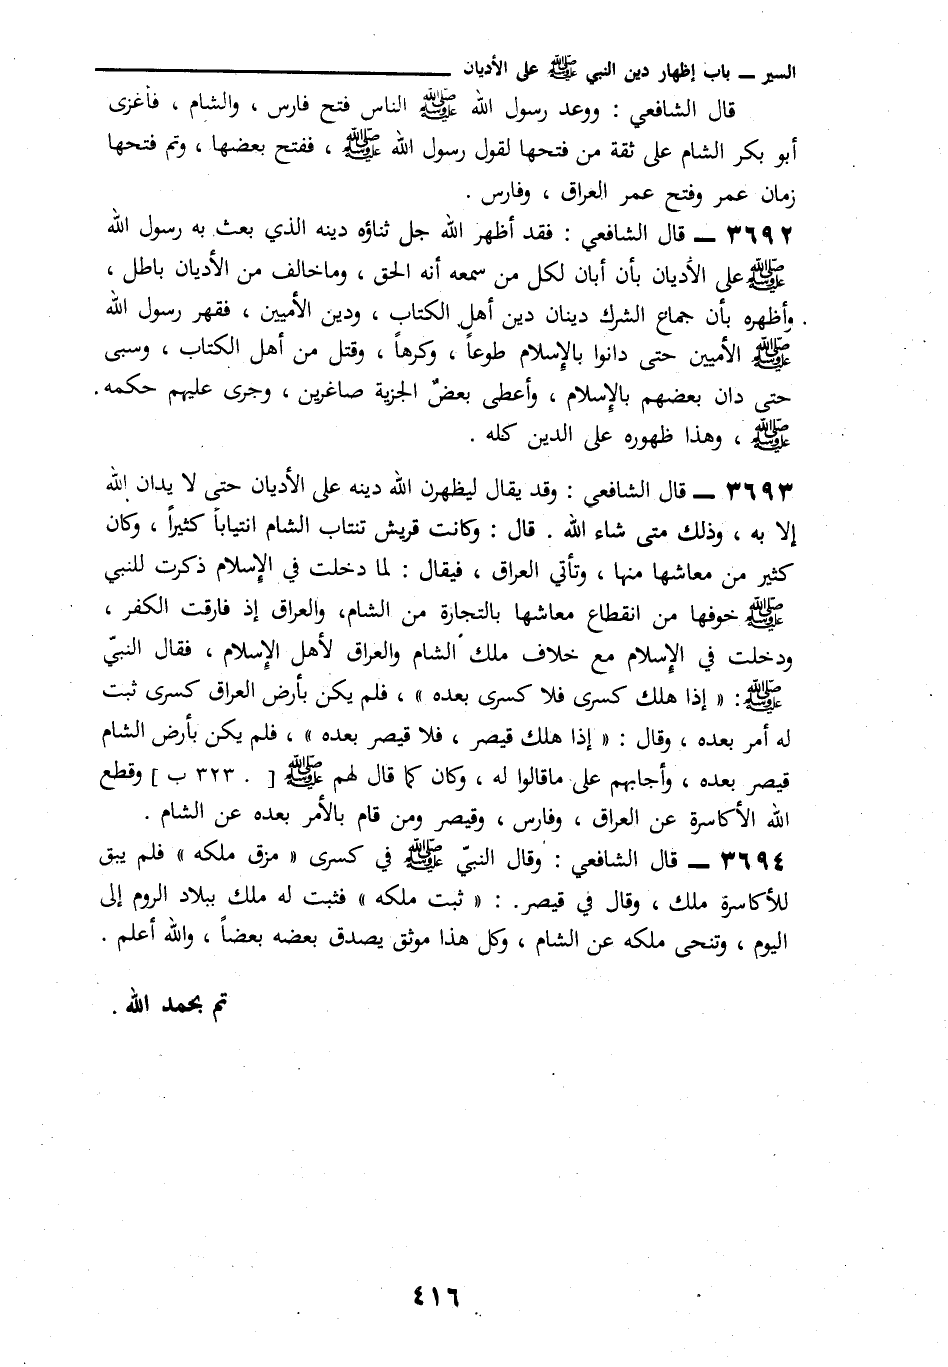 السير — باب إظهار دين النبي ﷺ على الأديان
قال الشافعي : ووعد رسول الله ﷺ الناس فتح فارس ، والشام ، فأغزى
أبو بكر الشام على ثقة من فتحها لقول رسول الله ﷺ ، ففتح بعضها ، وتم فتحها
زمان عمر وفتح عمر العراق ، وفارس .
٣٦٩٢ — قال الشافعي : فقد أظهر الله جل ثناؤه دينه الذي بعث به رسول الله
ﷺ على الأديان بأن أبان لكل من سمعه أنه الحق ، وماخالف من الأديان باطل ،
وأظهره بأن جماع الشرك دينان دين أهل الكتاب ، ودين الأميين ، فقهر رسول الله
ﷺ الأميين حتى دانوا بالإسلام طوعاً ، وكرهاً ، وقتل من أهل الكتاب ، وسبى
حتى دان بعضهم بالإسلام ، وأعطى بعضٌ الجزية صاغرين ، وجرى عليهم حكمه
ﷺ ، وهذا ظهوره على الدين كله .
٣٦٩٣ — قال الشافعي : وقد يقال ليظهرن الله دينه على الأديان حتى لا يدان الله
إلا به ، وذلك متى شاء الله . قال : وكانت قريش تنتاب الشام انتياباً كثيراً ، وكان
كثير من معاشها منها ، وتأتي العراق ، فيقال : لما دخلت في الإسلام ذكرت للنبي
ﷺ خوفها من انقطاع معاشها بالتجارة من الشام، والعراق إذ فارقت الكفر ،
ودخلت في الإسلام مع خلاف ملك الشام والعراق لأهل الإسلام ، فقال النبيّ
ﷺ : « إذا هلك كسرى فلا كسرى بعده » ، فلم يكن بأرض العراق كسرى ثبت
له أمر بعده ، وقال : « إذا هلك قيصر ، فلا قيصر بعده » ، فلم يكن بأرض الشام
قيصر بعده ، وأجابهم على ماقالوا له ، وكان كما قال لهم ﷺ [ . ٣٢٣ ب ] وقطع
الله الأكاسرة عن العراق ، وفارس ، وقيصر ومن قام بالأمر بعده عن الشام .
٣٦٩٤ — قال الشافعي : وقال النبيّ ﷺ في كسرى « مزق ملكه » فلم يبق
للأكاسرة ملك ، وقال في قيصر. : « ثبت ملكه » فثبت له ملك ببلاد الروم إلى
اليوم ، وتنحى ملكه عن الشام ، وكل هذا موثق يصدق بعضه بعضاً ، والله أعلم .
تم بحمد الله .
٤١٦